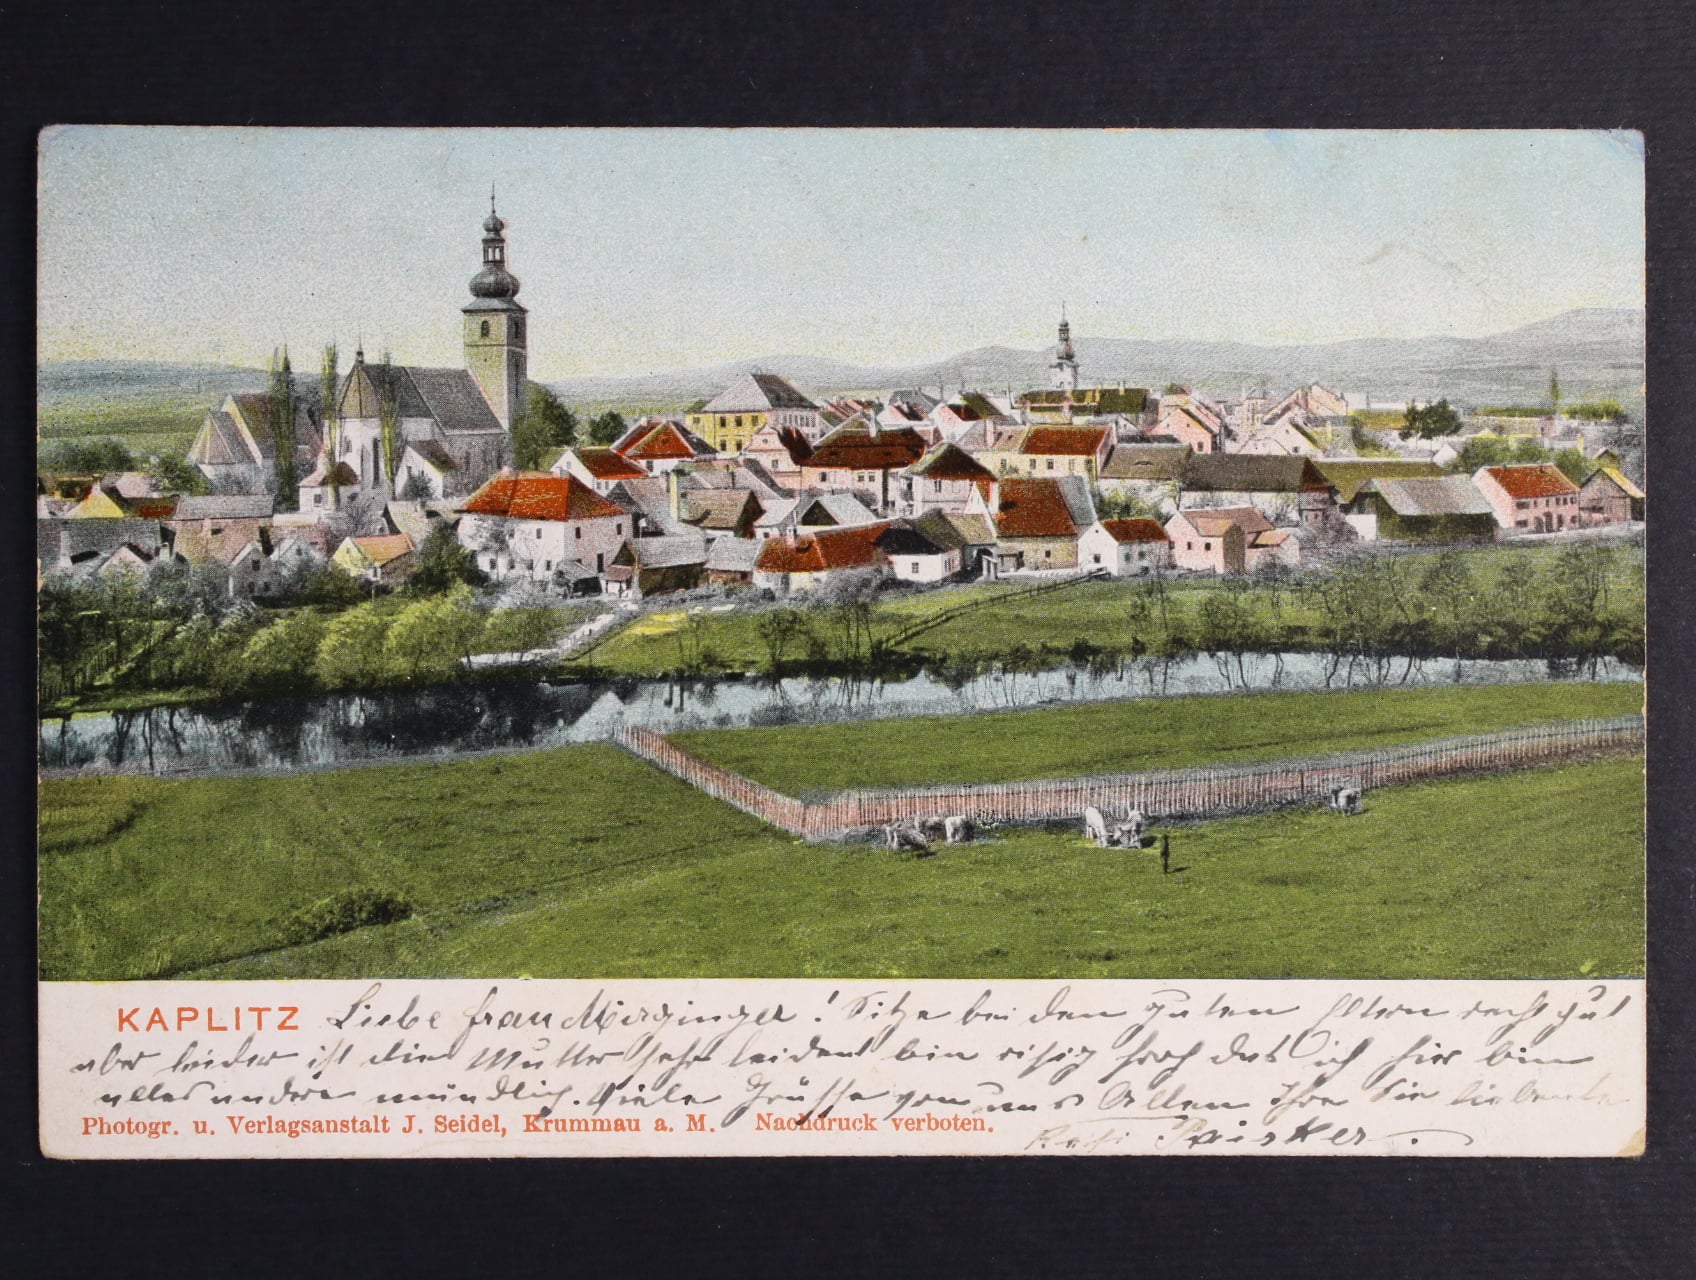 KAPLITZ Liebe Frau Mirginger! Sitze bei den guten Eltern recht gut
aber leider ist die Mutter sehr leidend bin risig froh das ich hier bin
alles andere mündlich. Viele Grüsse von uns Allen Ihre Sie liebende
Photogr. u. Verlagsanstalt J. Seidel, Krummau a. M. Nachdruck verboten.